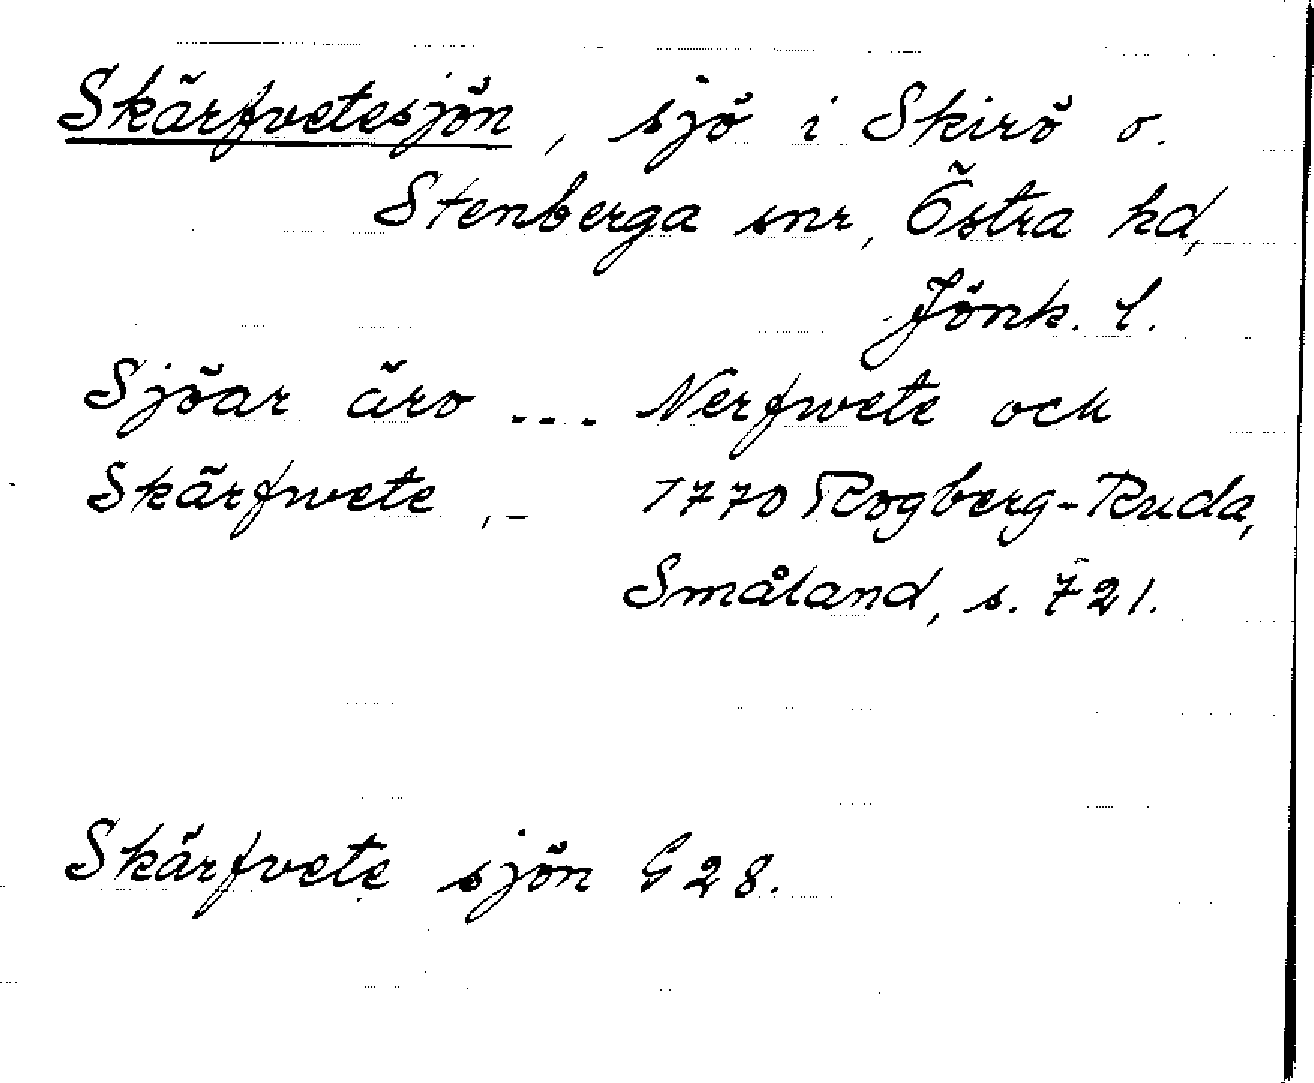 Skärfvetesjön, sjö i Skirö o.
Stenberga snr, Östra hd,
Jönk. l.
Sjöar äro ... Nerfwete och
Skärfwete, - 1770 Rogberg-Ruda,
Småland, s. 721.
Skärfvete sjön G 28.